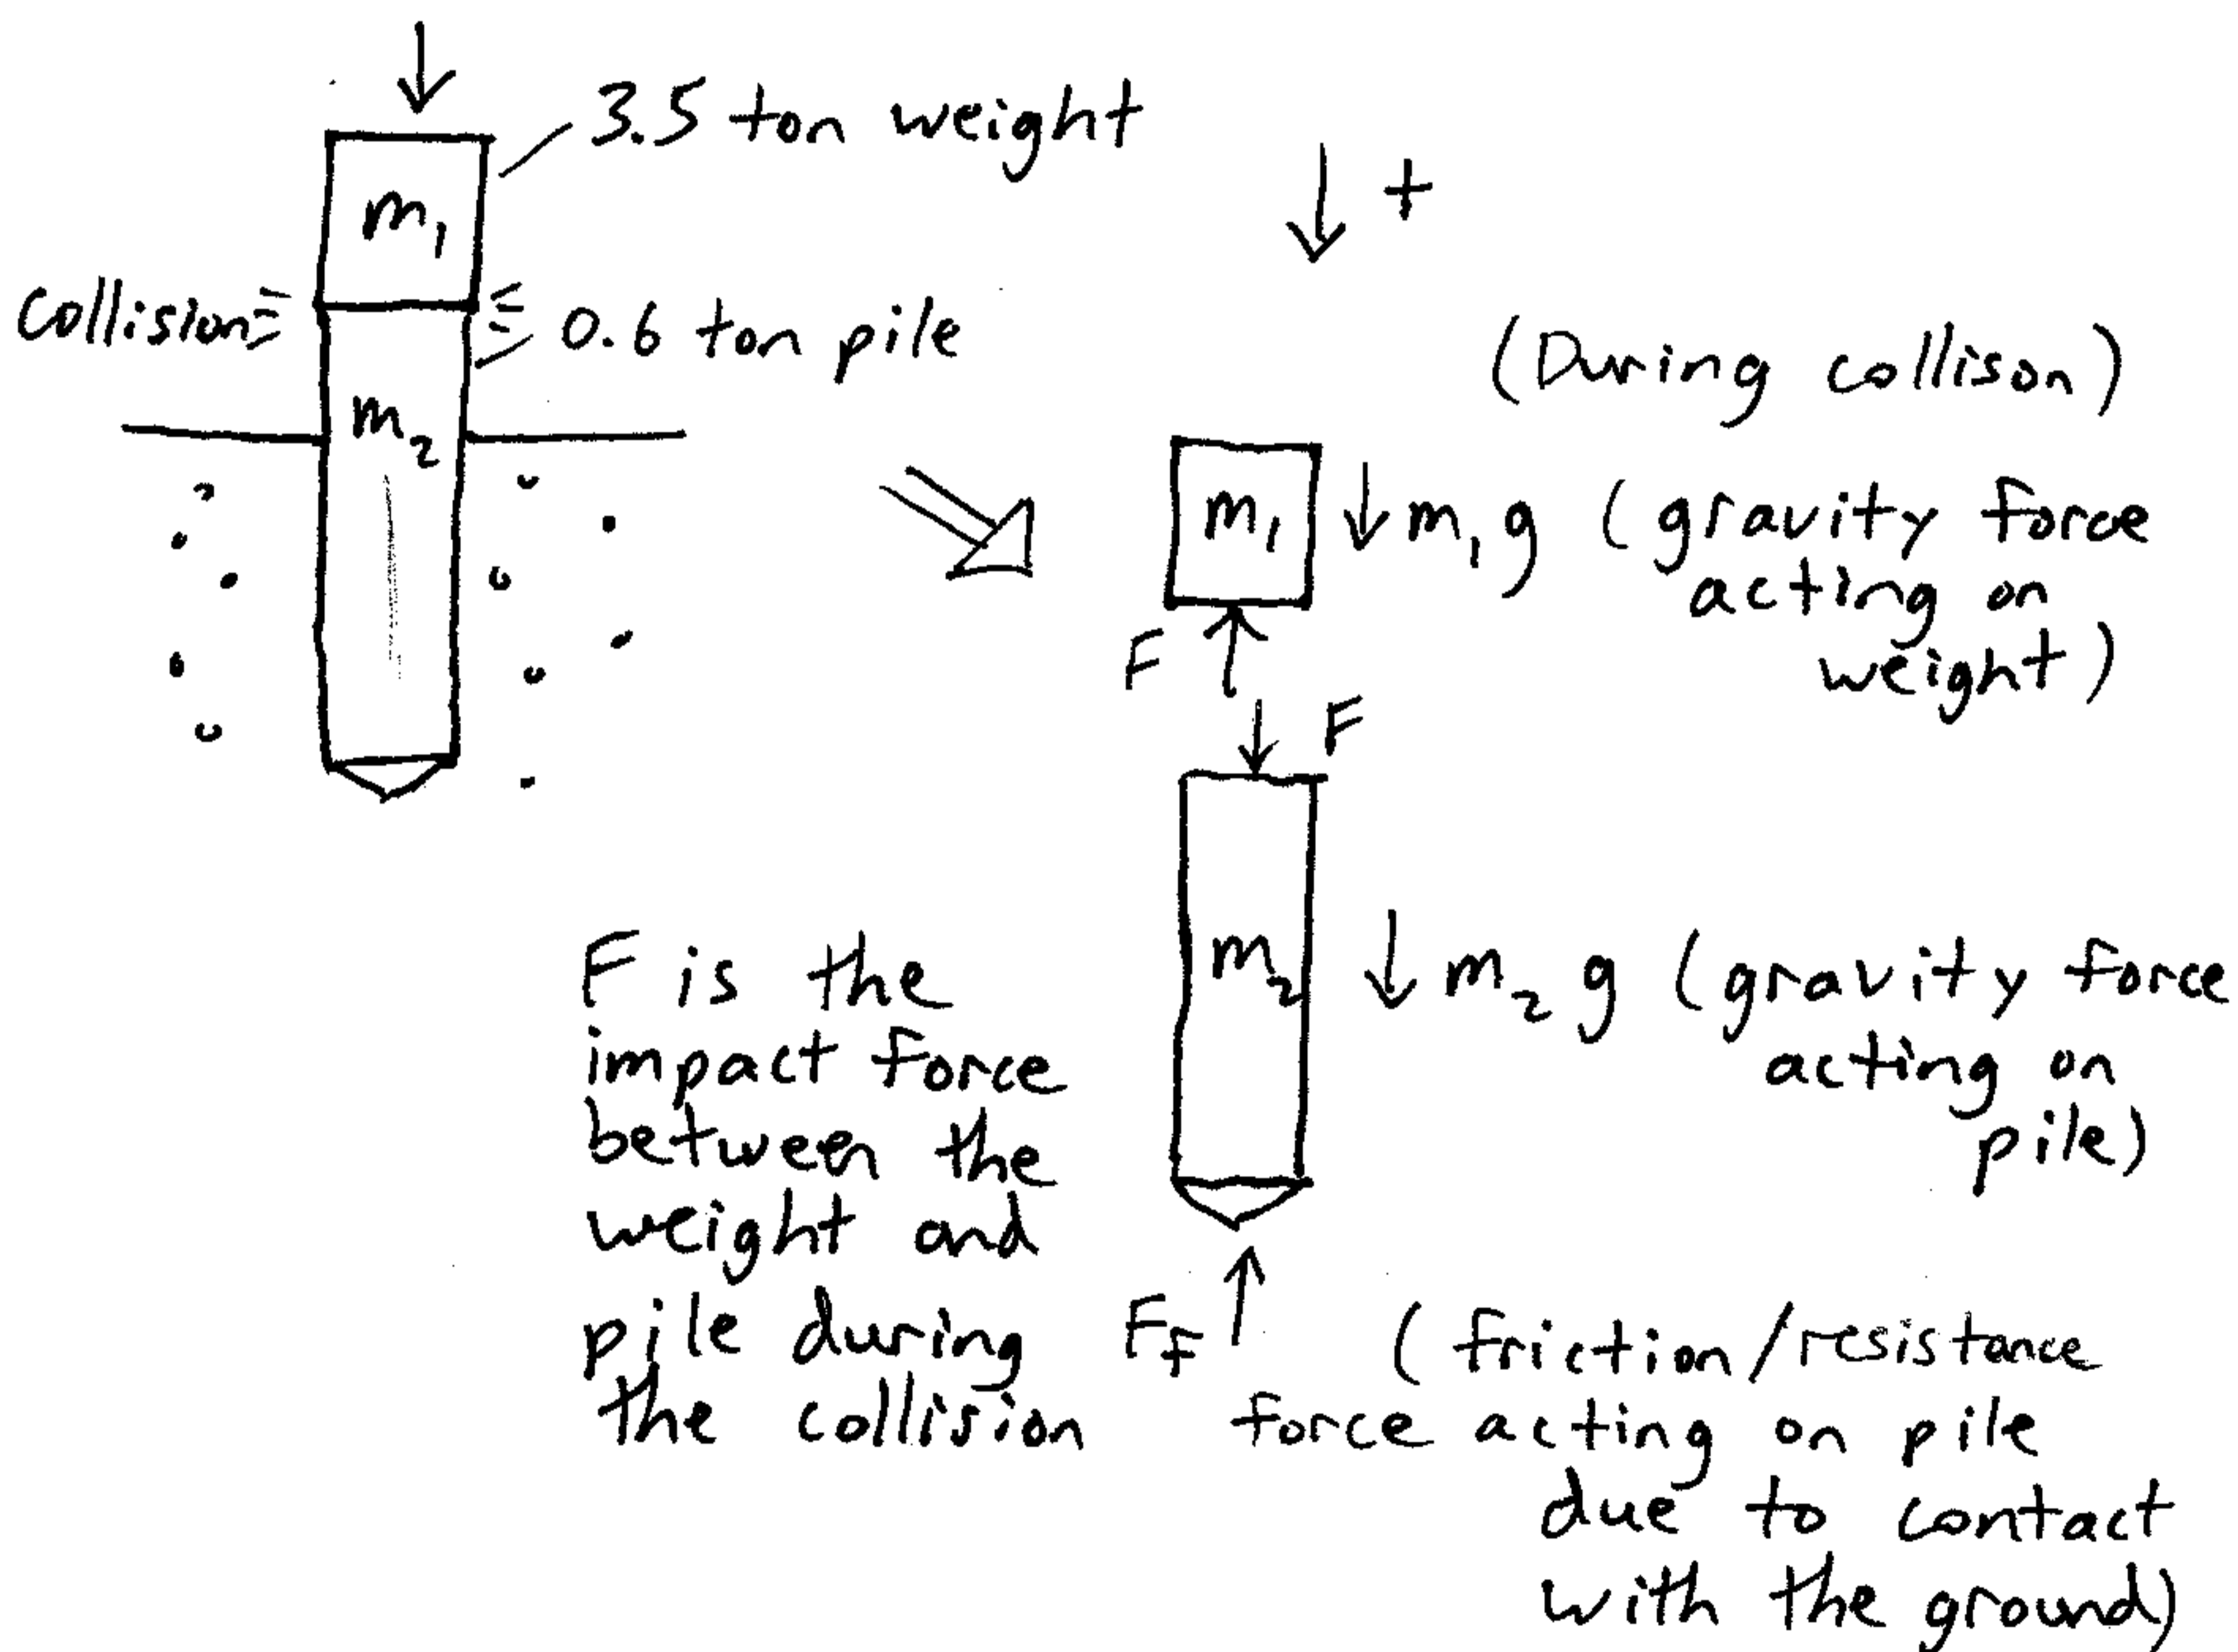 3.5 ton weight
m₁
+
collision
0.6 ton pile
m₂
(During collison)
m₁
m₁g (gravity force
acting on
weight)
F
F
m₂
m₂g (gravity force
acting on
pile)
F is the
impact force
between the
weight and
pile during
the collision
F_f
(friction/resistance
force acting on pile
due to contact
with the ground)